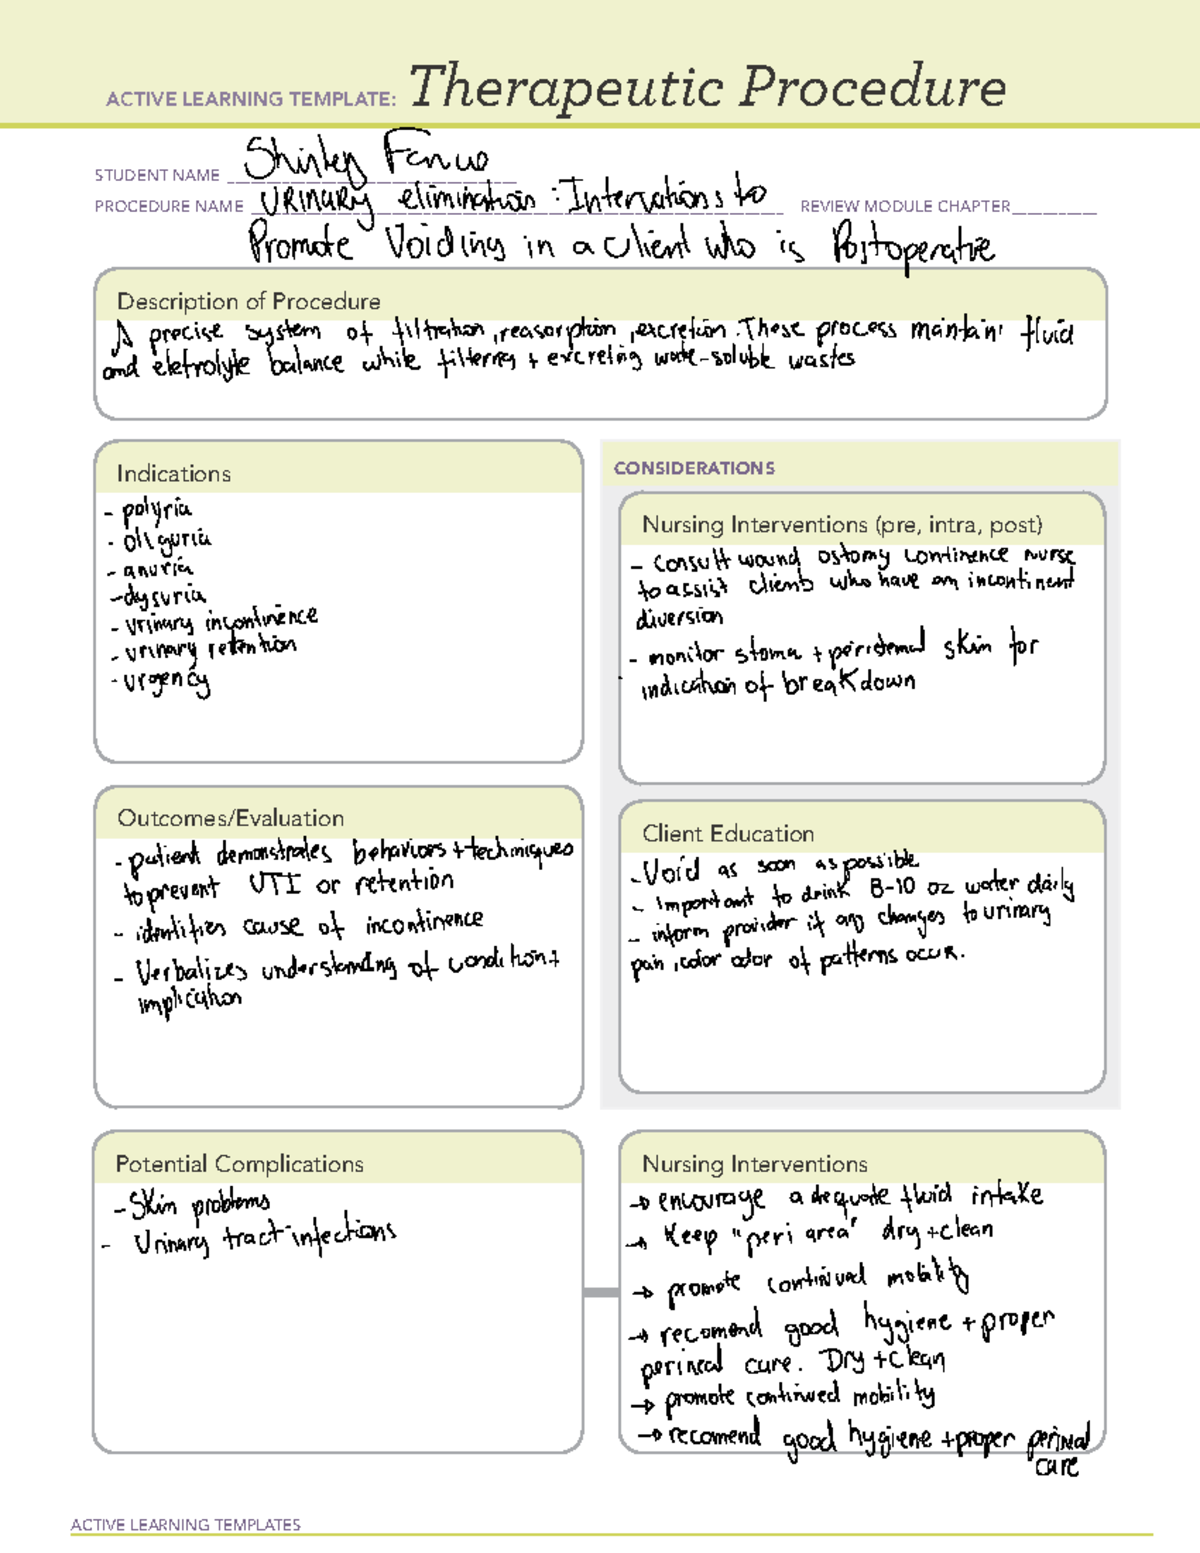 ACTIVE LEARNING TEMPLATE: Therapeutic Procedure
STUDENT NAME Shirley
PROCEDURE NAME URINARY elimination : Intervations to REVIEW MODULE CHAPTER
Promote Voiding in a client who is Postoperative
Description of Procedure
A precise system of filtration, reasorption, excretion. These process maintain fluid
and eletrolyte balance while filterring + excreting wate-soluble wastes
Indications
- polyria
- oliguria
- anuria
- dysuria
- urinary incontinence
- urinary retention
- urgency
CONSIDERATIONS
Nursing Interventions (pre, intra, post)
- Consult wound ostomy continence nurse
to assist clients who have an incontinent
diversion
- monitor stoma + peristomal skin for
indication of breakdown
Outcomes/Evaluation
- patient demonstrates behaviors + techniques
to prevent UTI or retention
- identifies cause of incontinence
- Verbalizes understanding of condition +
implication
Client Education
- Void as soon as possible
- Important to drink 8-10 oz water daily
- inform provider if any changes to urinary
pain, color odor of patterns occur.
Potential Complications
- Skin problems
- Urinary tract infections
Nursing Interventions
→ encourage adequate fluid intake
→ Keep "peri area" dry + clean
→ promote continued mobility
→ recomend good hygiene + proper
perineal care. Dry + clean
→ promote continued mobility
→ recomend good hygiene + proper perineal
care
ACTIVE LEARNING TEMPLATES